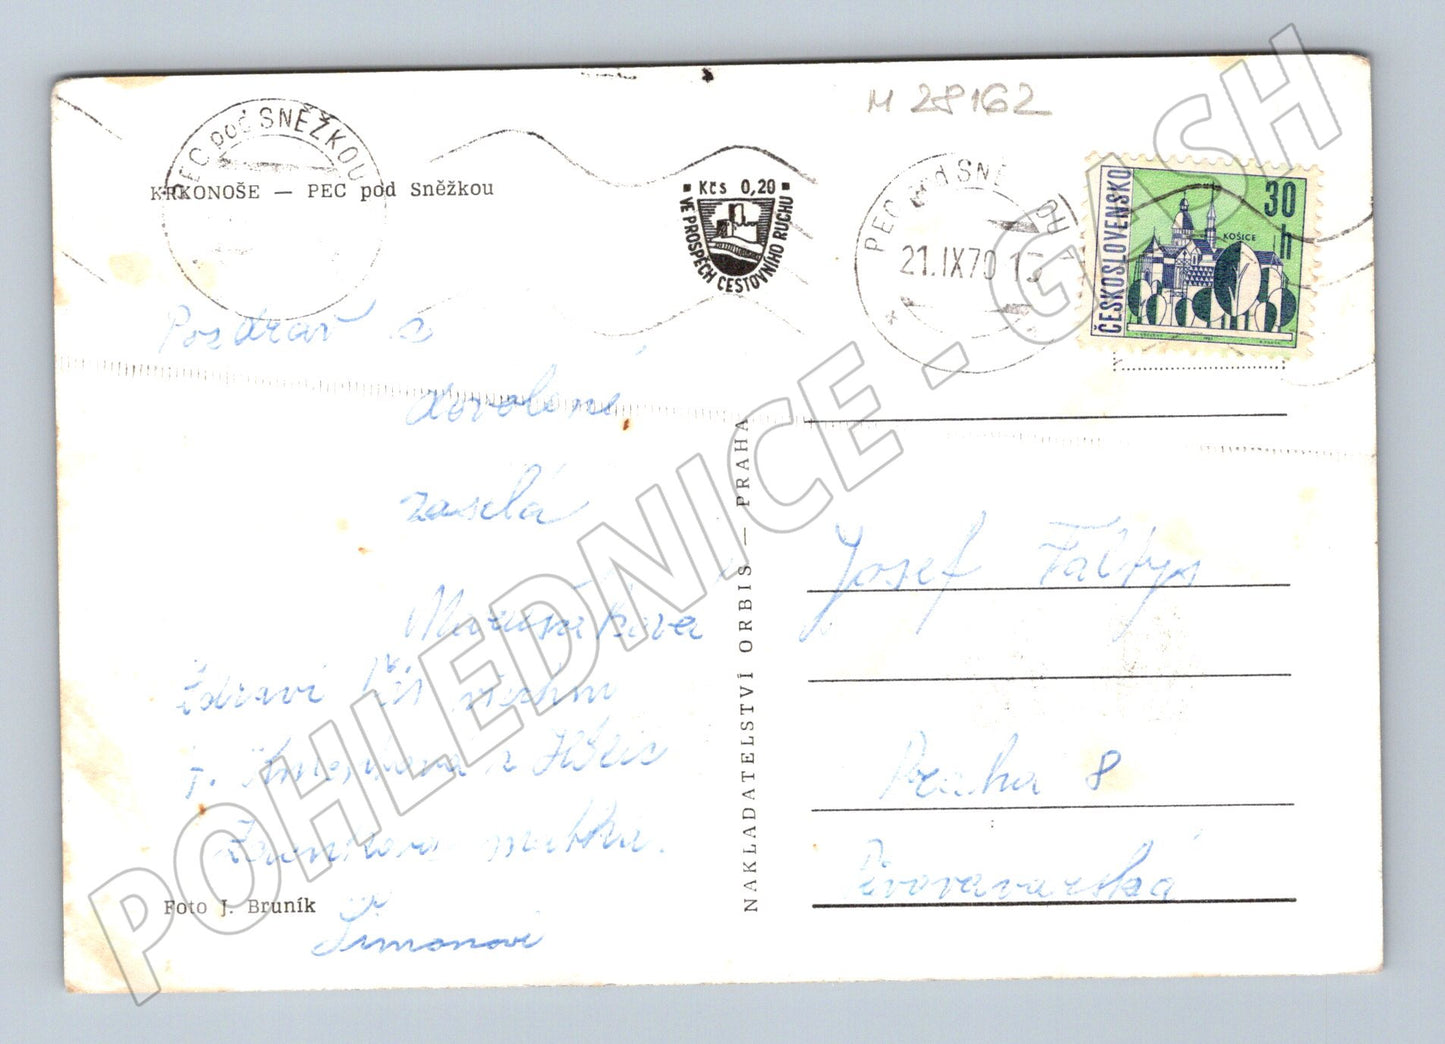 M 28162
PEC pod SNĚŽKOU
KRKONOŠE — PEC pod Sněžkou
Kčs 0,20
VE PROSPĚCH CESTOVNÍHO RUCHU
PEC pod SNĚ
21.IX70
ČESKOSLOVENSKO
30 h
KOŠICE
Pozdrav z
dovolené
zasílá
Zdraví
všechny
matka.
Šimonovi
Foto J. Bruník
NAKLADATELSTVÍ ORBIS — PRAHA
Josef Faltys
Praha 8
Pivovarská
POHLEDNICE - GASH